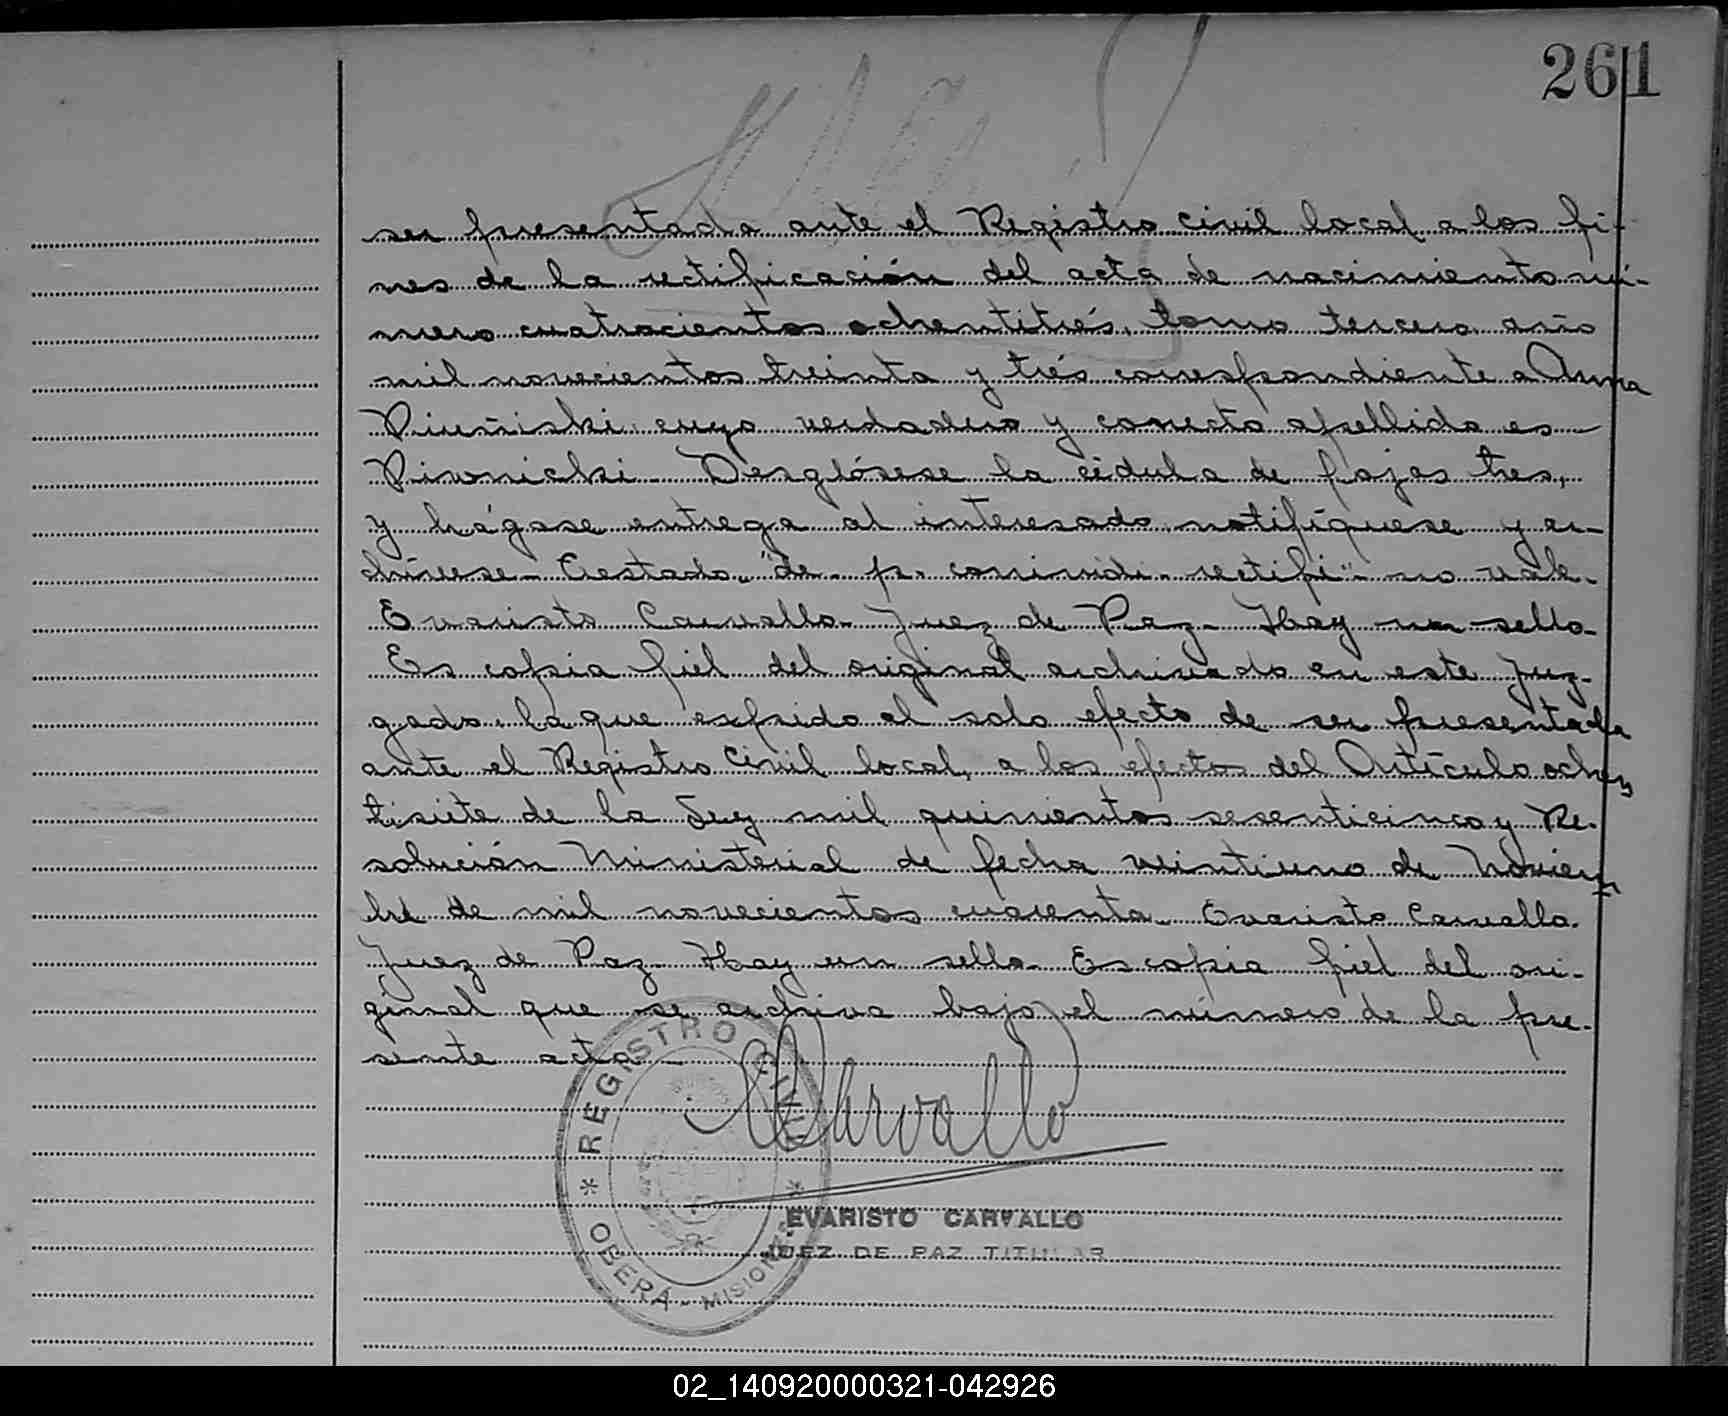 261
ser presentada ante el Registro civil local a los fi-
nes de la rectificación del acta de nacimiento nú-
mero cuatrocientos ochentitrés, tomo tercero año
mil novecientos treinta y trés correspondiente a Anna
Piuñiski cuyo verdadero y correcto apellido es
Piwnicki. Desglósese la cédula de fojas tres,
y hágase entrega al interesado, notifíquese y ar-
chívese- Testado "de- p. rectifi"- no vale-
Evaristo Carvallo- Juez de Paz- Hay un sello-
Es copia fiel del original archivado en este Juz-
gado, la que expido al solo efecto de ser presentada
ante el Registro Civil local, a los efectos del Artículo ochen
tisiete de la Ley mil quinientos sesenticinco y Re-
solución Ministerial de fecha veintiuno de Noviem
bre de mil novecientos cuarenta- Evaristo Carvallo-
Juez de Paz- Hay un sello- Es copia fiel del ori-
ginal que se archiva bajo el número de la pre-
sente acta-
Carvallo
REGISTRO CIVIL
* OBERA - MISIONES *
EVARISTO CARVALLO
JUEZ DE PAZ TITULAR
02_140920000321-042926